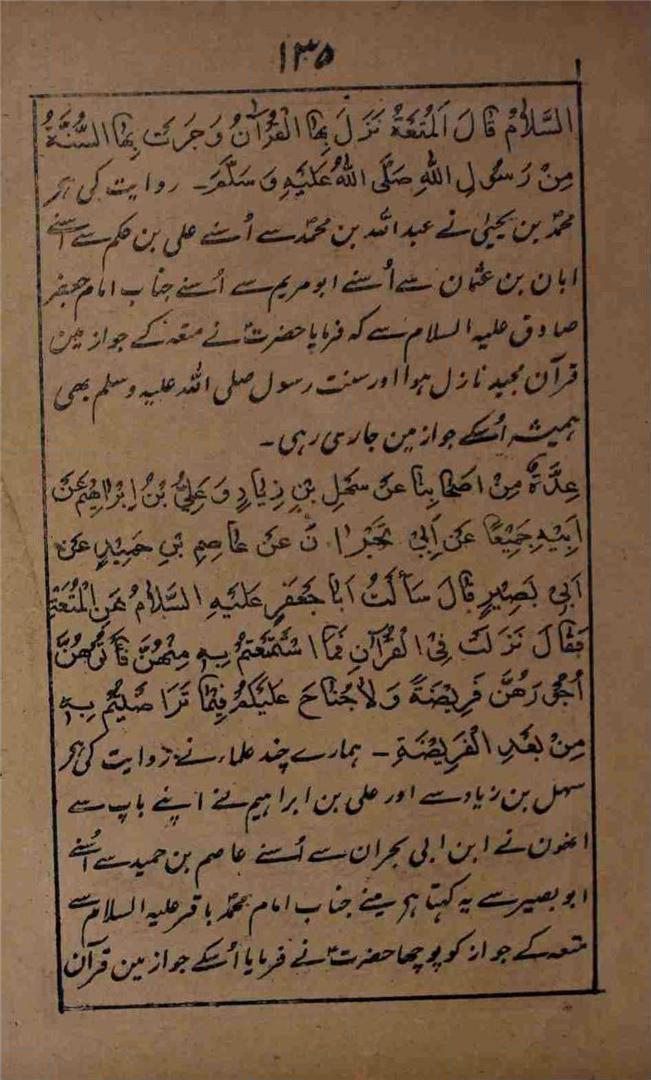 ۱۳۵
السَّلَامُ قَالَ اَلْمُتْعَةُ نَزَلَ بِهَا الْقُرْآنُ وَجَرَتْ بِهَا السُّنَّةُ
مِنْ رَسُولِ اللهِ صَلَّى اللهُ عَلَيْهِ وَسَلَّمَ۔ روایت کی ہر
محمد بن یحییٰ نے عبد اللہ بن محمد سے اُسنے علی بن حکم سے اُسنے
ابان بن عثمان سے اُسنے ابو مریم سے اُسنے جناب امام جعفر
صادق علیہ السلام سے کہ فرمایا حضرت نے متعہ کے جواز مین
قرآن مجید نازل ہوا اور سنت رسول صلی اللہ علیہ وسلم بھی
ہمیشہ اُسکے جواز مین جاری رہی۔
عِدَّةٌ مِنْ اَصْحَابِنَا عَنْ سَهْلِ بْنِ زِيَادٍ وَعَلِيُّ بْنُ اِبْرَاهِيْمَ عَنْ
اَبِيْهِ جَمِيْعًا عَنْ اَبِي نَجْرَانَ عَنْ عَاصِمِ بْنِ حَمِيْدٍ عَنْ
اَبِي بَصِيْرٍ قَالَ سَأَلْتُ اَبَا جَعْفَرٍ عَلَيْهِ السَّلَامُ عَنِ الْمُتْعَةِ
فَقَالَ نَزَلَتْ فِي الْقُرْآنِ فَمَا اسْتَمْتَعْتُمْ بِهِ مِنْهُنَّ فَآتُوهُنَّ
اُجُوْرَهُنَّ فَرِيْضَةً وَلَا جُنَاحَ عَلَيْكُمْ فِيْمَا تَرَاضَيْتُمْ بِهِ
مِنْ بَعْدِ الْفَرِيْضَةِ۔ ہمارے چند علماء نے روایت کی ہر
سہل بن زیاد سے اور علی بن ابراہیم نے اپنے باپ سے
اونھون نے ابن ابی نجران سے اُسنے عاصم بن حمید سے اُسنے
ابو بصیر سے یہ کہتا ہر مینے جناب امام محمد باقر علیہ السلام سے
متعہ کے جواز کو پوچھا حضرت نے فرمایا اُسکے جواز مین قرآن